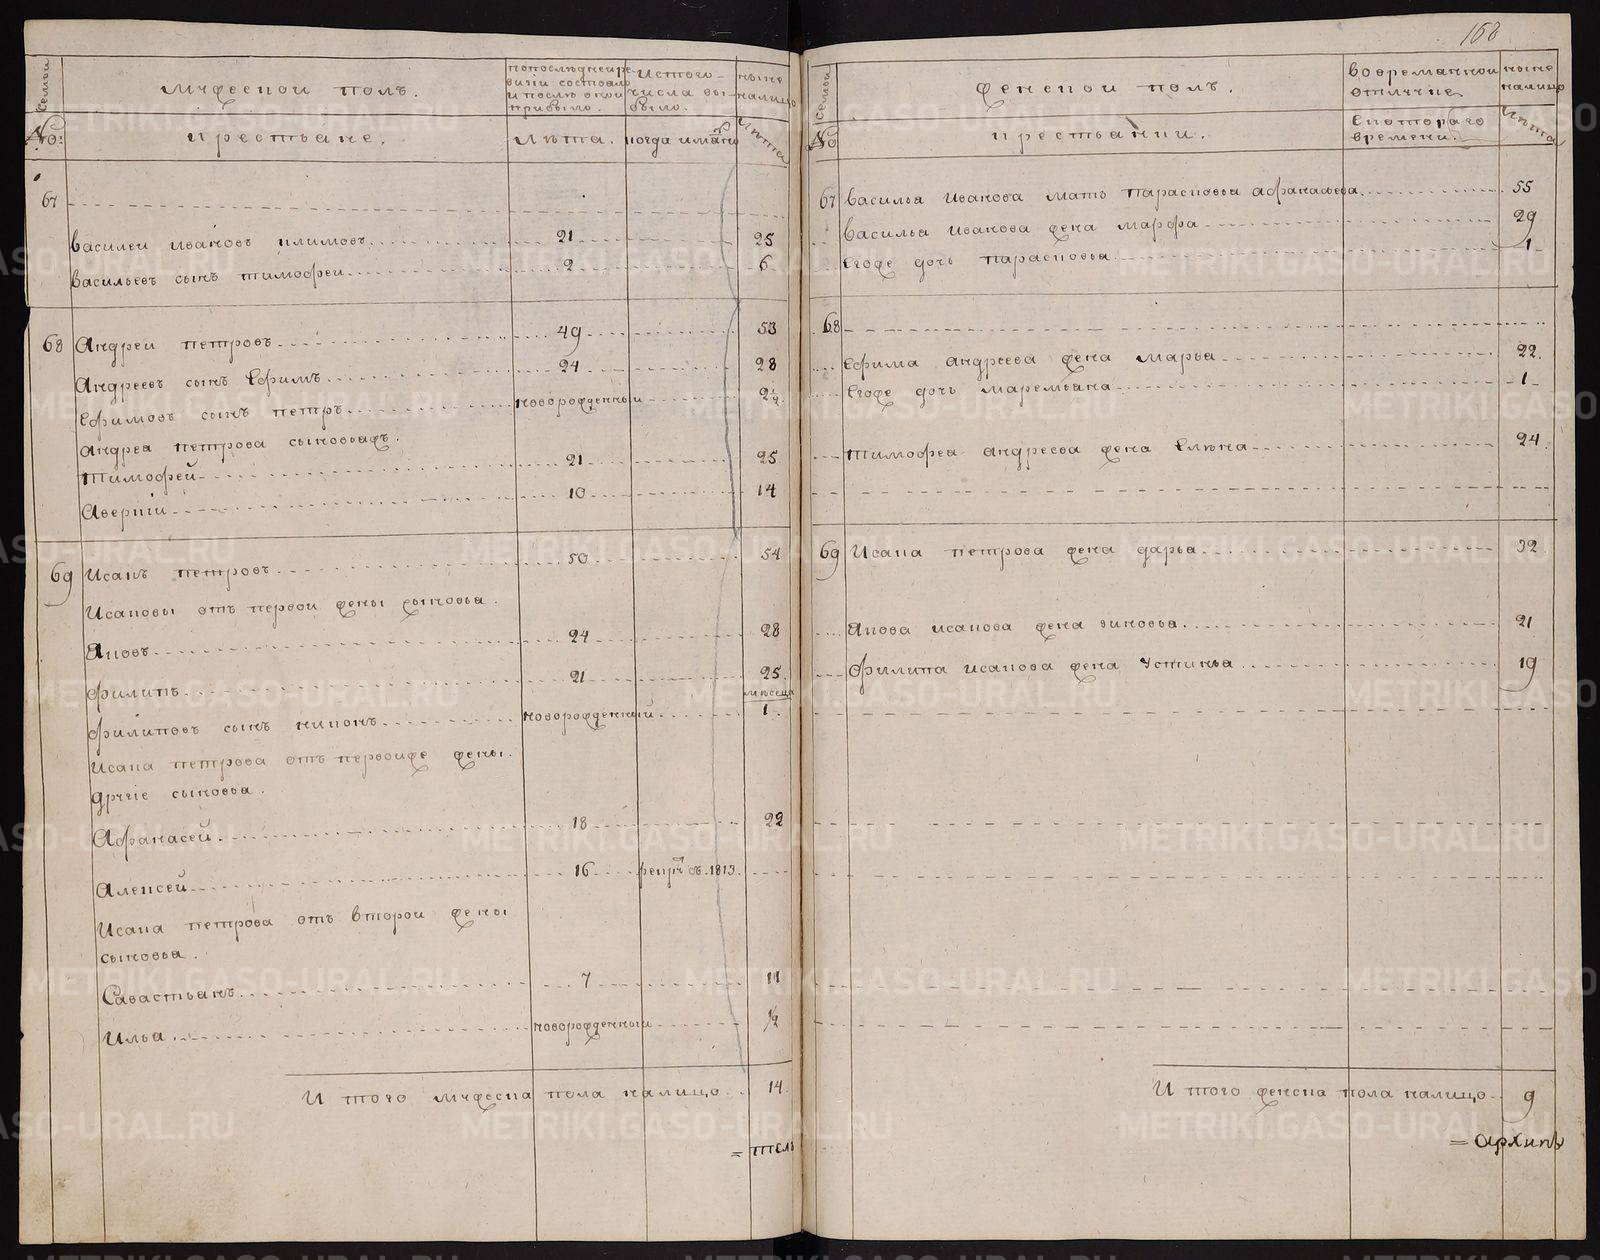 168
Семьи
мужеской полъ.
попоследней ре-
визіи состояло
и после оной
прибыло.
Истого
числа вы-
было.
ныне
налицо
№:
крестьяне.
Лѣта.
когда имянно
Лѣта
67
Василеи ивановъ климовъ 21 25
Васильевъ сынъ тимофеи 2 6
68 Андреи петровъ 49 53
Андреевъ сынъ Ефимъ 24 28
Ефимовъ сынъ петръ новорожденныи 2½
Андреа петрова сыновьаѣ.
Тимофей 21 25
Аверкіи 10 14
69 Исакъ петровъ 50 54
Исаковы отъ первои жены сыновьа.
Аковъ 24 28
Филипъ 21 25
месеца
Филиповъ сынъ никонъ новорожденный 1
Исака петрова отъ первоиже жены.
Другіе сыновьа.
Афанасей 18 22
Алексей 16 рекрутъ въ 1813
Исака петрова отъ второи жены
сыновьа.
Савастьанъ 7 11
Ильа новорожденныи ½
И того мужеска пола налицо 14
= тель
Семьи
женскои полъ.
вовременной
отлучке
ныне
налицо
№
крестьянки.
Скотораго
времени.
Лѣта
67 Васильа Иванова мать парасковьа афанасьева 55
Васильа Иванова жена марфа 29
Егоже дочь парасковьа 1
68
Ефима андреева жена марьа 22
Егоже дочь маремьана 1
Тимофеа андреева жена Елена 24
69 Исака петрова жена дарьа 32
Акова исакова жена зиновьа 21
Филипа исакова жена устиньа 19
И того женска пола налицо 9
= Архипъ
METRIKI.GASO-URAL.RU